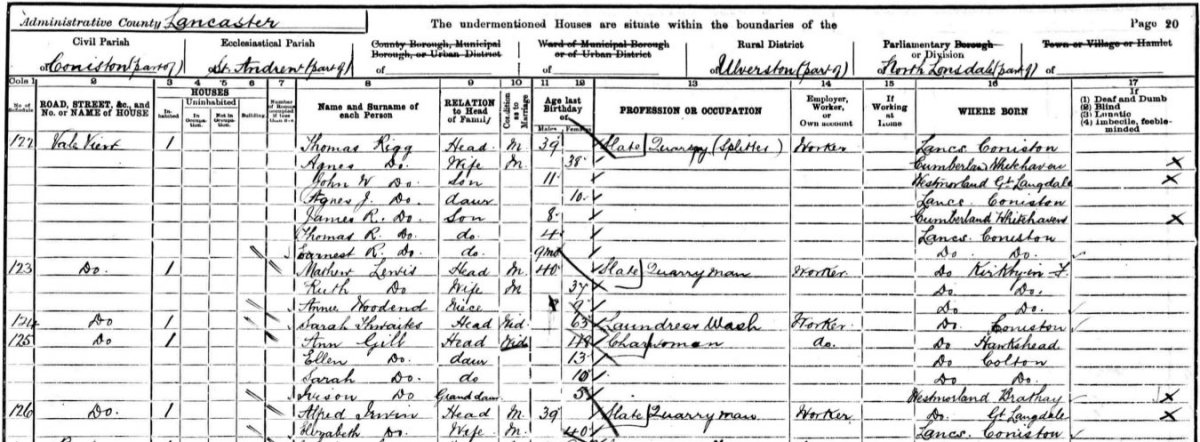 Administrative County Lancaster The undermentioned Houses are situate within the boundaries of the Page 20
Civil Parish Ecclesiastical Parish County Borough, Municipal Borough, or Urban District Ward of Municipal Borough or of Urban District Rural District Parliamentary Borough or Division Town or Village or Hamlet
of Coniston (part of) St. Andrew (part of) of of of Ulverston (part of) of North Lonsdale (part of) of
Cols 1 2 3 4 5 6 7 8 9 10 11 12 13 14 15 16 17
No. of Schedule ROAD, STREET, &c., and No. or NAME of HOUSE HOUSES Inhabited Uninhabited In Occupation. Not in Occupation. Building Number of Rooms occupied if less than five Name and Surname of each Person RELATION to Head of Family Condition as to Marriage Age last Birthday of Males Females PROFESSION OR OCCUPATION Employer, Worker, or Own account If Working at Home WHERE BORN If (1) Deaf and Dumb (2) Blind (3) Lunatic (4) Imbecile, feeble-minded
122 Vale View 1 Thomas Rigg Head M 39 Slate Quarry (Splitter) Worker Lancs. Coniston
Agnes Do. Wife M 38 Cumberland Whitehaven
John W Do Son 11 Westmorland Gt Langdale
Agnes J. Do. daur 10 Lancs. Coniston
James R. Do. Son 8 Cumberland Whitehaven
Thomas R. Do. do. 4 Lancs. Coniston
Earnest R. Do. do. 9mo Do Do.
123 Do. 1 Mathew Lewis Head M 40 Slate Quarryman Worker Do Kirkby in F.
Ruth Do Wife M 37 Do Do.
Annie Woodend Niece 9 Do Do
124 Do 1 Sarah Thwaits Head Wid. 63 Laundress Wash Worker Do. Coniston
125 Do 1 Ann Gill Head Wid 48 Charwoman do. Do Hawkshead
Ellen Do. daur 13 Do Colton
Sarah Do do 10 Do Do.
Ivison Do Grand daur 5 Westmorland Brathay
126 Do. 1 Alfred Irwin Head M 39 Slate Quarryman Worker Do. Gt Langdale
Elizabeth Do. Wife M 40 Lancs. Coniston